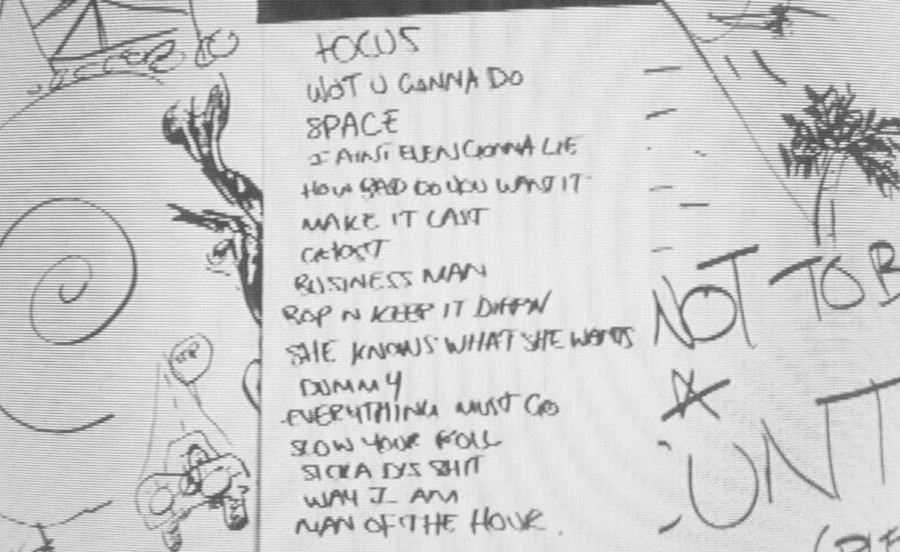 FOCUS
WOT U GONNA DO
SPACE
I AINT EVEN GONNA LIE
HOW BAD DO YOU WANT IT
MAKE IT LAST
GHOST
BUSINESS MAN
BOP N KEEP IT DIPPN
SHE KNOWS WHAT SHE WANTS
DUMMY
EVERYTHING MUST GO
SLOW YOUR ROLL
SICKA DIS SHIT
WAY I AM
MAN OF THE HOUR.
NOT TO B
UNT